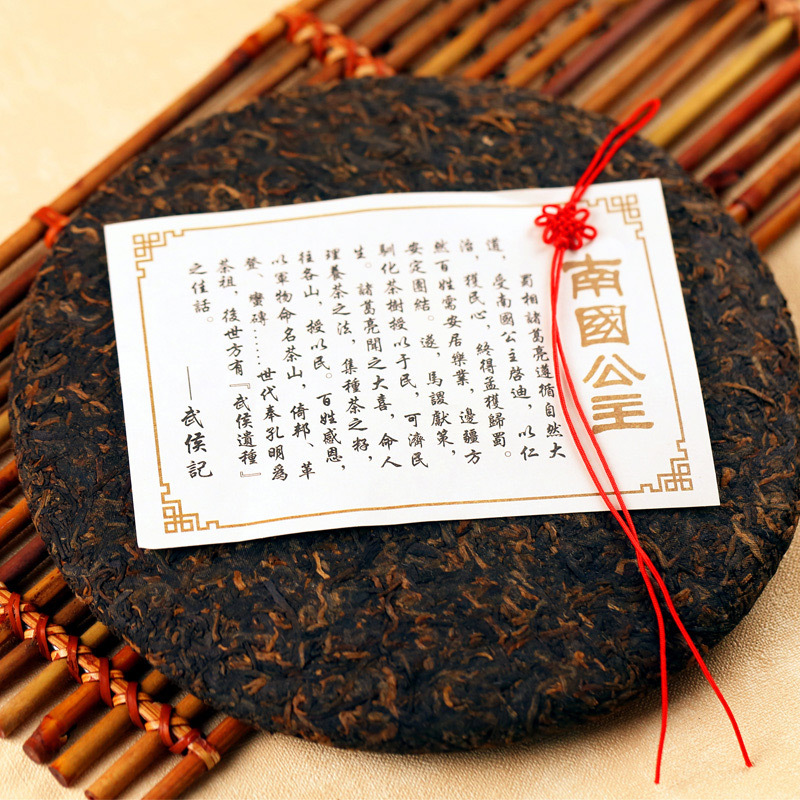 南國公主
蜀相諸葛亮遵循自然大
道，受南國公主啓迪，以仁
治，獲民心，終得孟獲歸蜀。
然百姓需安居樂業，邊疆方
安定團結。遂，馬謖獻策，
馴化茶樹授以于民，可濟民
生。諸葛亮聞之大喜，命人
理養茶之法，集種茶之籽，
往各山，授以民。百姓感恩，
以軍物命名茶山，倚邦、革
登、蠻磚……世代奉孔明爲
茶祖，後世方有『武侯遺種』
之佳話。
——武侯記